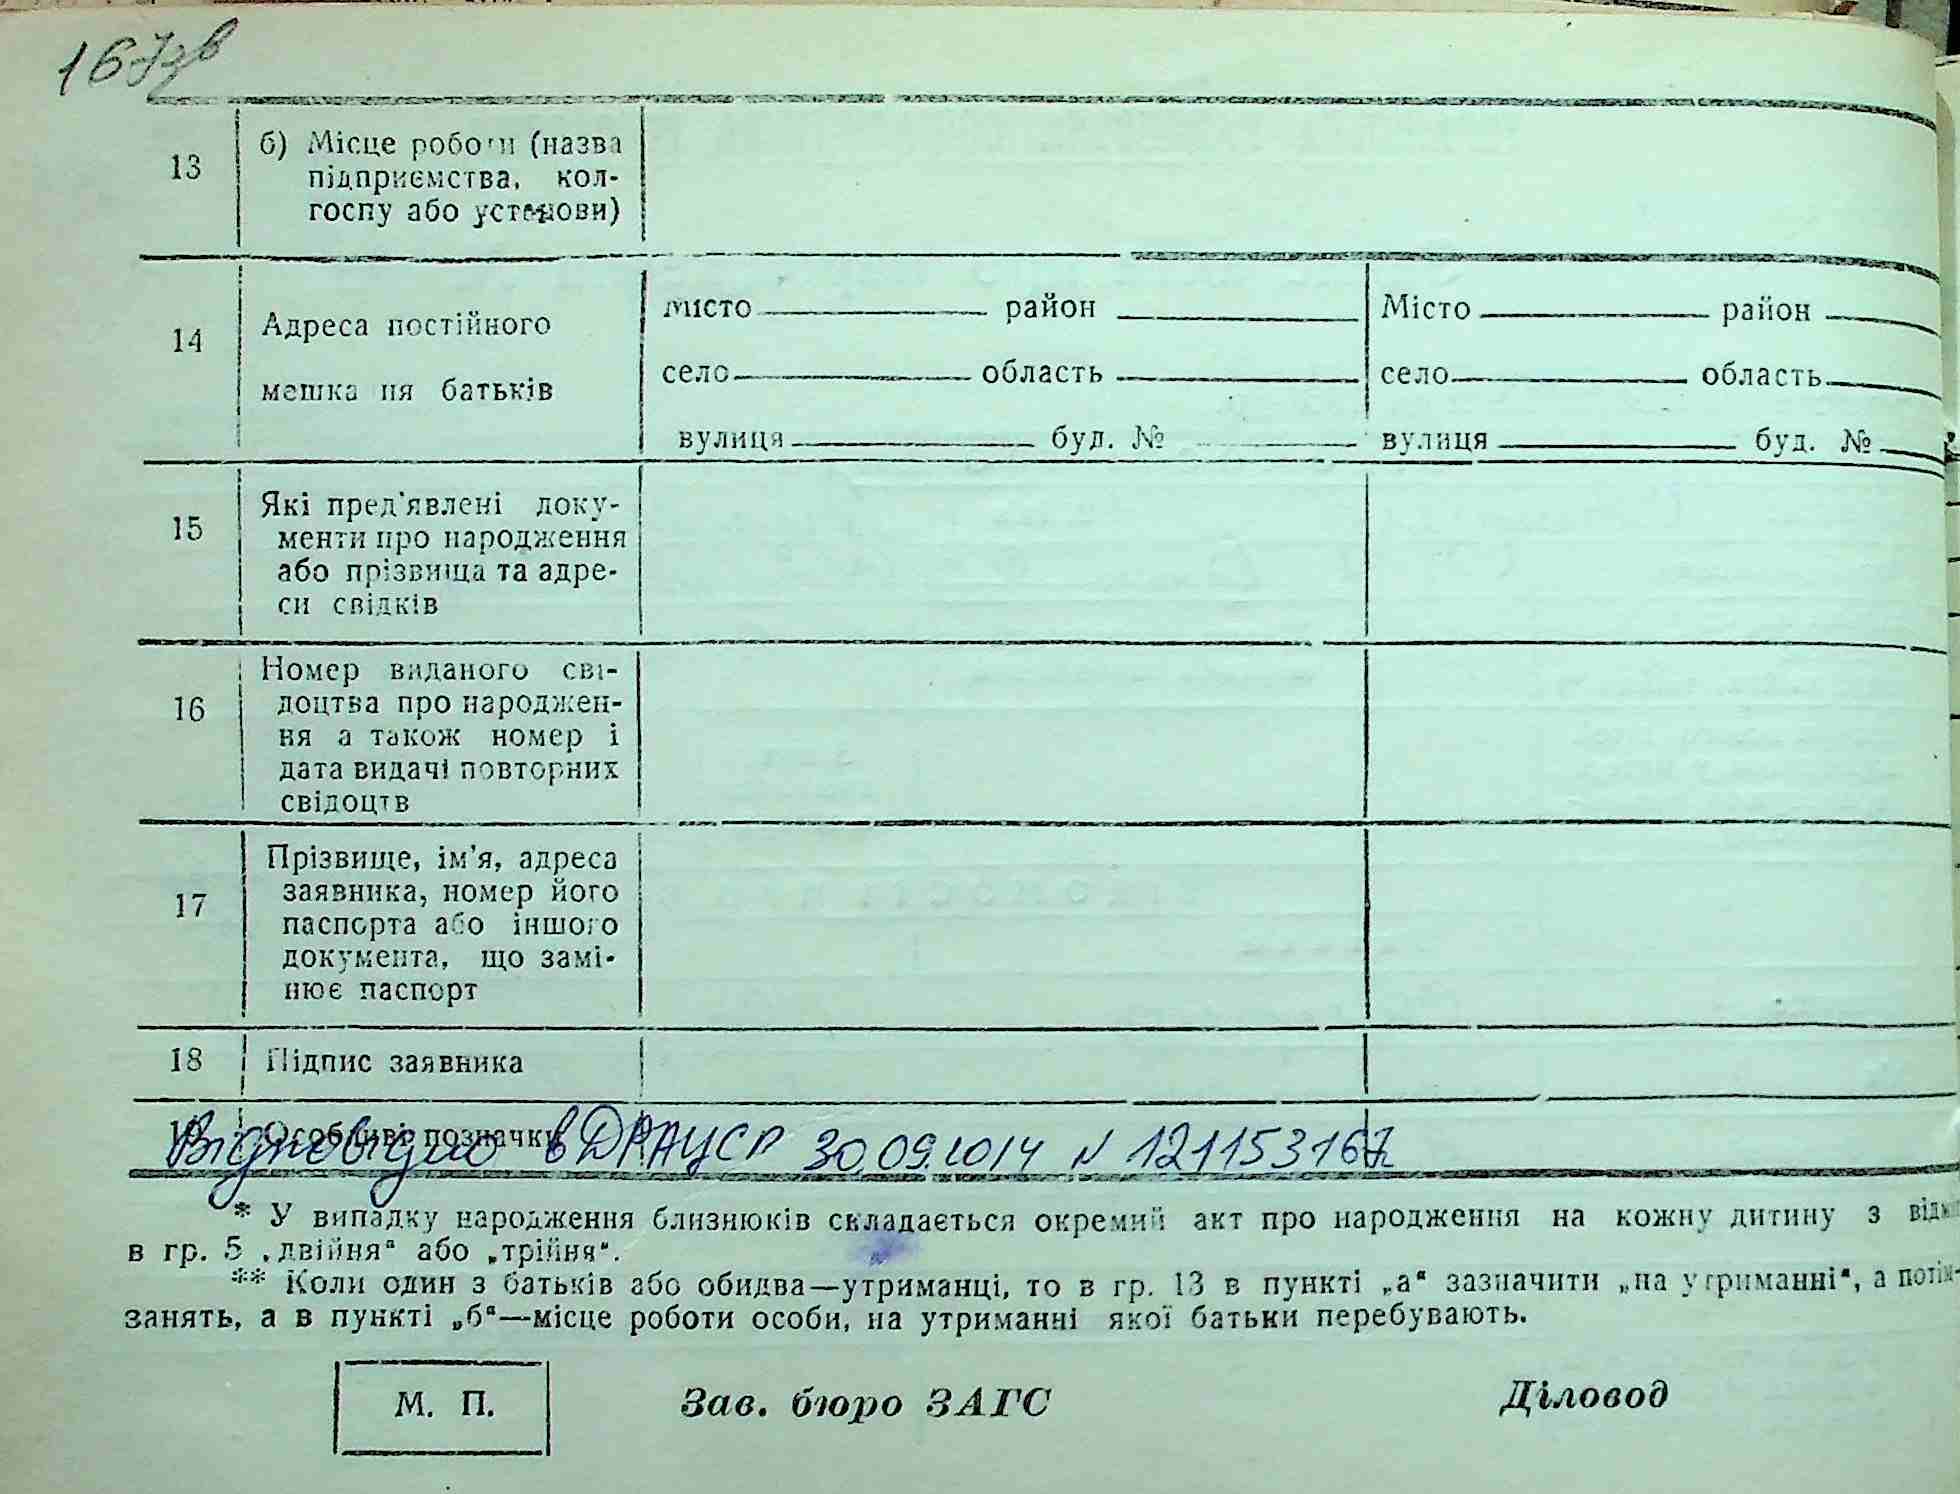 167зв
13 б) Місце роботи (назва
підприємства, кол-
госпу або установи)
14 Адреса постійного
мешка ня батьків
місто район Місто район
село область село область
вулиця буд. № вулиця буд. №
15 Які пред'явлені доку-
менти про народження
або прізвища та адре-
си свідків
16 Номер виданого сві-
доцтва про народжен-
ня а також номер і
дата видачі повторних
свідоцтв
17 Прізвище, ім'я, адреса
заявника, номер його
паспорта або іншого
документа, що замі-
нює паспорт
18 Підпис заявника
Особливі позначки
в ДРАЦСГ 30.09.2014 N 121153167
* У випадку народження близнюків складається окремий акт про народження на кожну дитину з
в гр. 5 „двійня“ або „трійня“.
** Коли один з батьків або обидва—утриманці, то в гр. 13 в пункті „а“ зазначити „на утриманні“, а потім
занять, а в пункті „б“—місце роботи особи, на утриманні якої батьки перебувають.
М. П. Зав. бюро ЗАГС Діловод